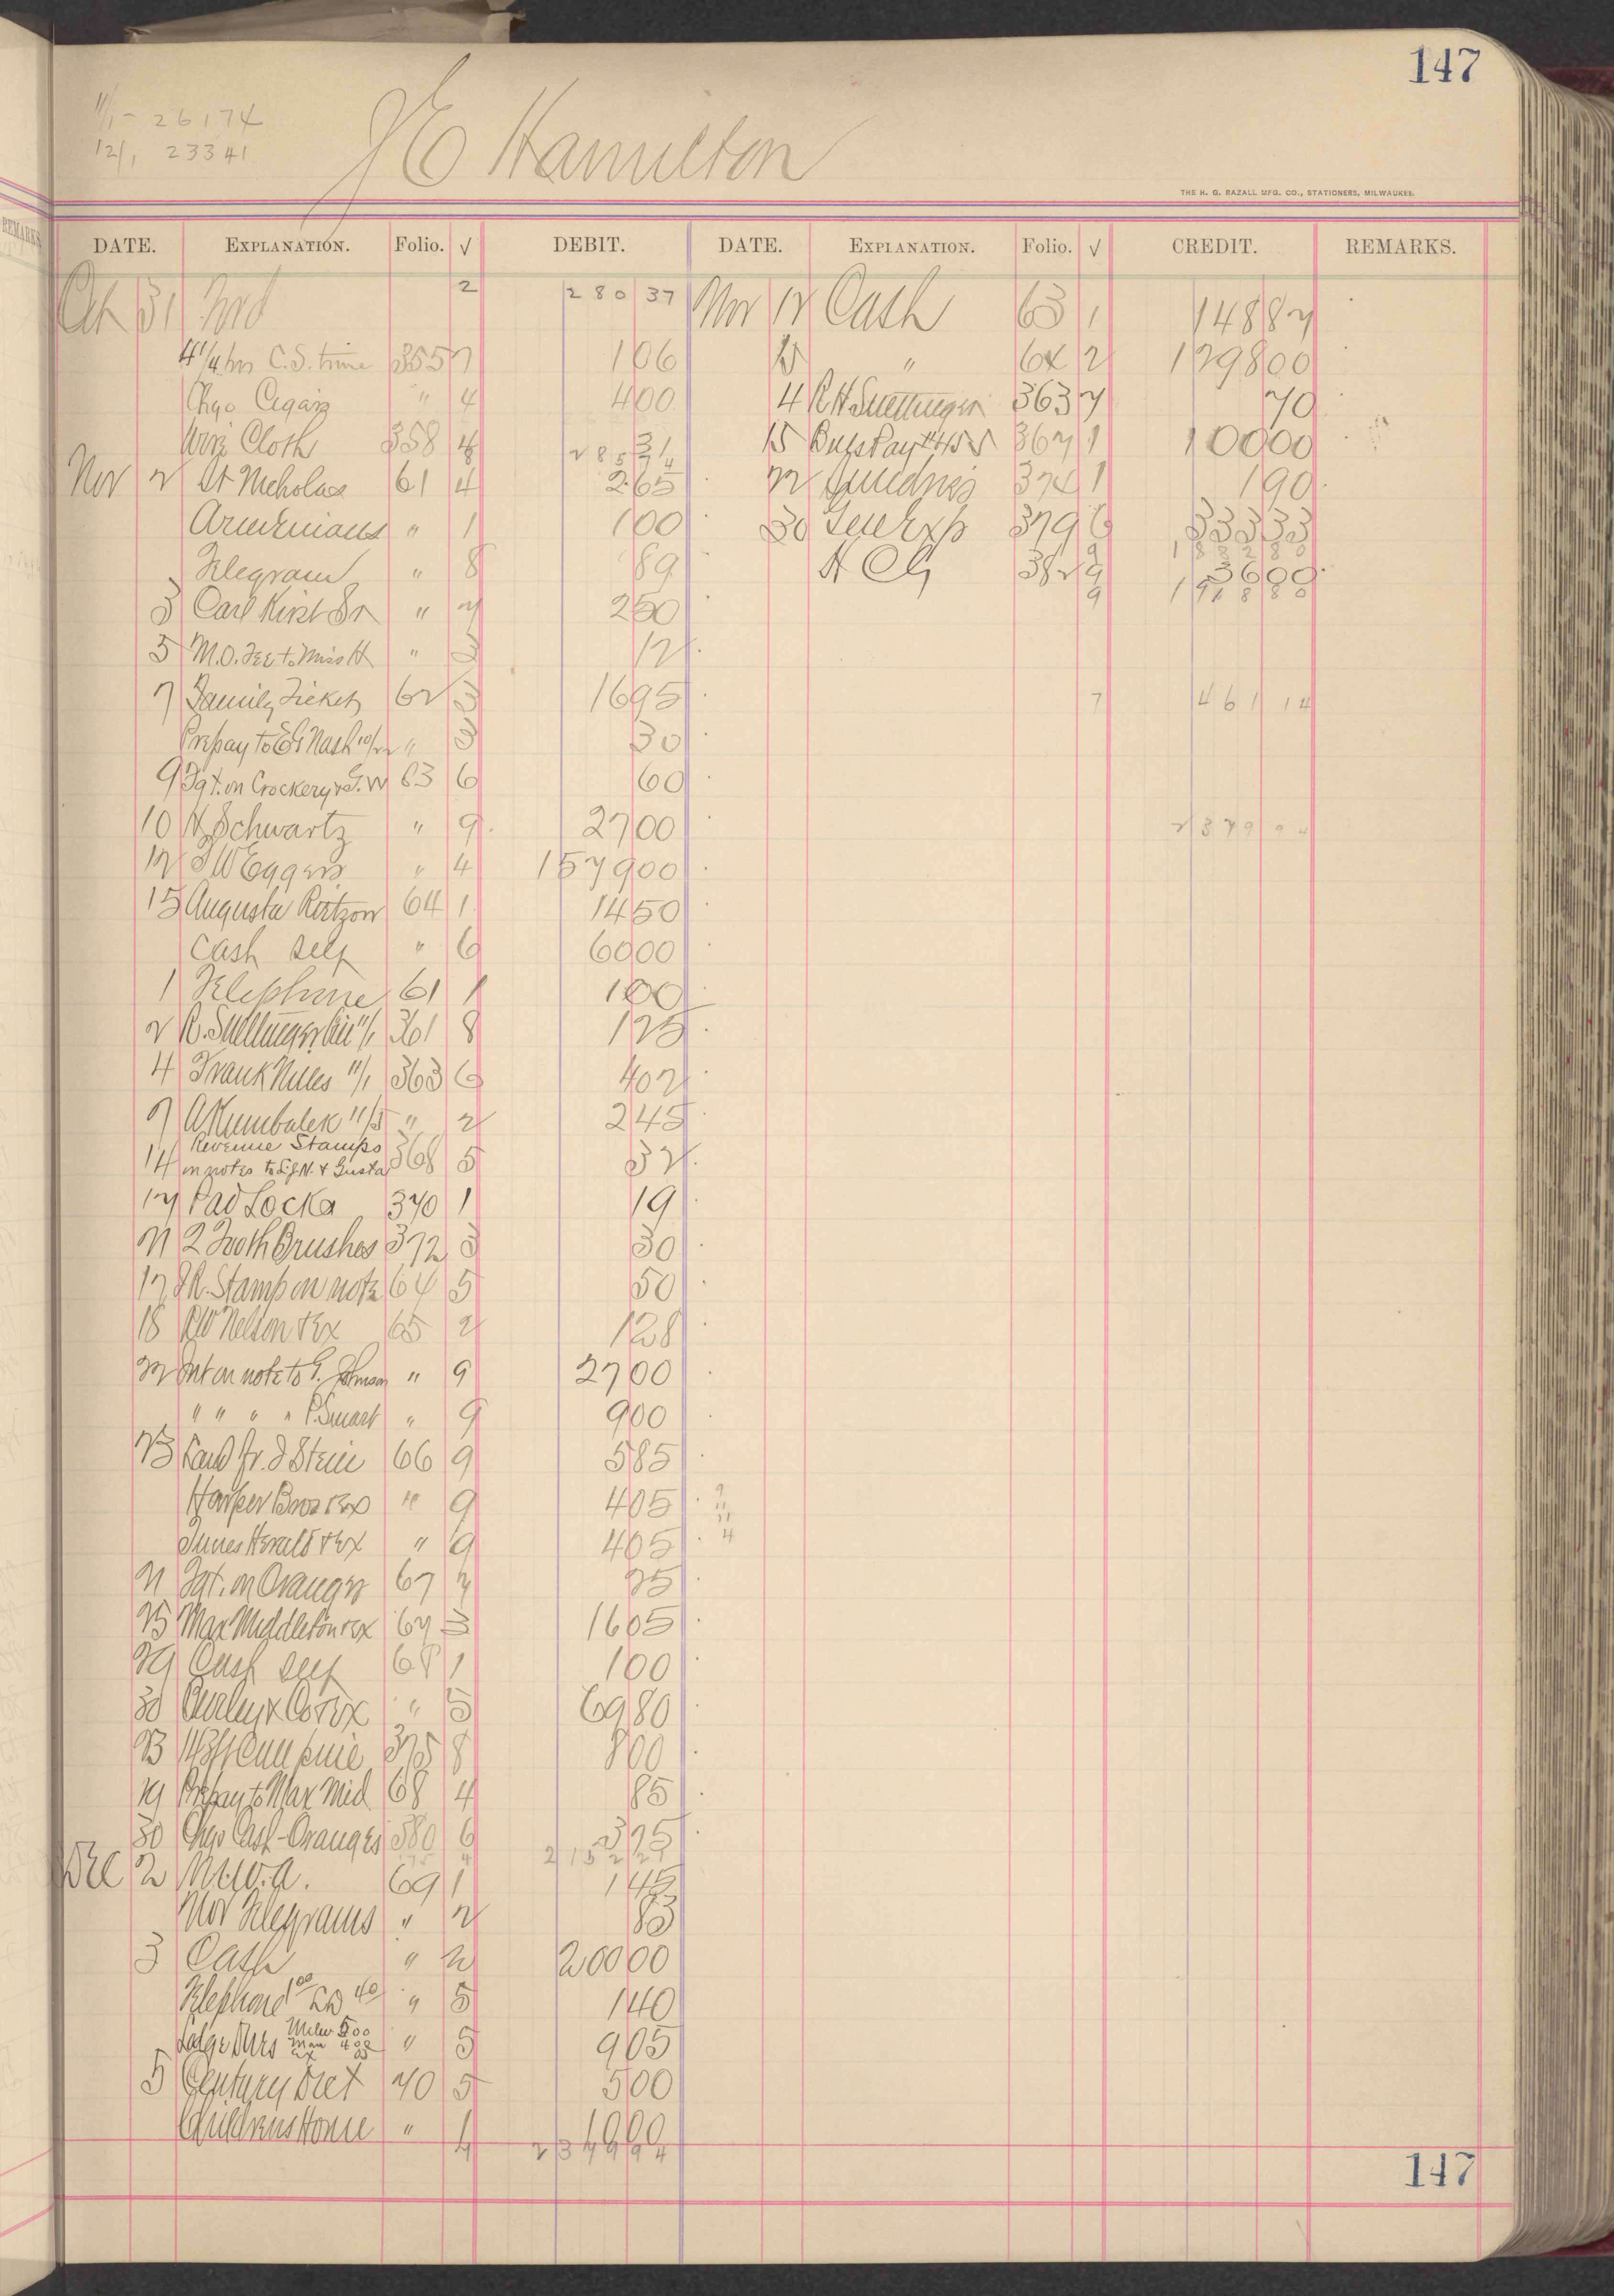 147
11/1- 26174
12/1 23341
J E Hamilton
THE H. G. RAZALL MFG. CO., STATIONERS, MILWAUKEE.
REMARKS
DATE. EXPLANATION. Folio. √ DEBIT. DATE. EXPLANATION. Folio. √ CREDIT. REMARKS.
Oct 31 Fwd 2 280 37 Nov 12 Cash 63 1 148 87
4 1/4 hrs C.S. time 355 7 1 06 15 " 64 2 1298 00
Chgo Cigars " 4 4 00 4 R H Suettinger 363 7 70
Wire Cloth 358 8 285 31 15 367 1 100 00
Nov 2 St Nicholas 61 4 2 65 22 374 1 1 90
Armenians " 1 1 00 30 Gen Exp 379 6 333 33
1882 80
Telegram " 8 89 H 382 9 36 00
3 Carl Kirst Sr " 7 2 50 9 1918 80
5 M.O. Fee to Miss H " 3 12
7 Family Tickets 62 3 16 95 7 461 14
Prepay to E G Nash 10/22 " 3 30
9 Fgt. on Crockery & G.W 63 6 60
10 H Schwartz " 9 27 00 2379 94
12 J W Eggers " 4 1579 00
15 Augusta Rietzow 64 1 14 50
Cash self " 6 60 00
1 Telephone 61 1 1 00
2 R. Suettinger 11/1 361 8 1 25
4 Frank Niles 11/1 363 6 4 02
7 A Kumbalek 11/5 " 2 2 45
Revenue Stamps
14 on notes to E.J.N. & Gusta 368 5 32
17 Pad Locks 370 1 19
21 2 Tooth Brushes 372 3 30
17 I R. Stamp on note 64 5 50
18 R W Nelson & Ex 65 2 1 28
22 Int on note to G. Johnson " 9 27 00
" " " " P. Smart " 9 9 00
23 fr. J Stein 66 9 5 85
Harper Bros & Ex " 9 4 05
Times Herald & Ex " 9 4 05
21 Fgt. on Oranges 67 7 25
25 Max Middleton & Ex 67 3 16 05
29 Cash self 68 1 1 00
30 Burley & Co & Ex " 5 69 80
23 143 ft 375 8 8 00
29 Prepay to Max Mid 68 4 85
30 Chgo Cash - Oranges 380 6 3 25
2152 27
Dec 2 M.W.A. 69 1 1 45
Nov Telegrams " 2 83
3 Cash " 2 200 00
Telephone 1 00 LD 40 " 5 1 40
Lodge Dues Milw 5 00 Man 4 00 Ex 05 " 5 9 05
5 Century Dict 70 5 5 00
Childrens Home " 1 10 00
4 2379 94
147